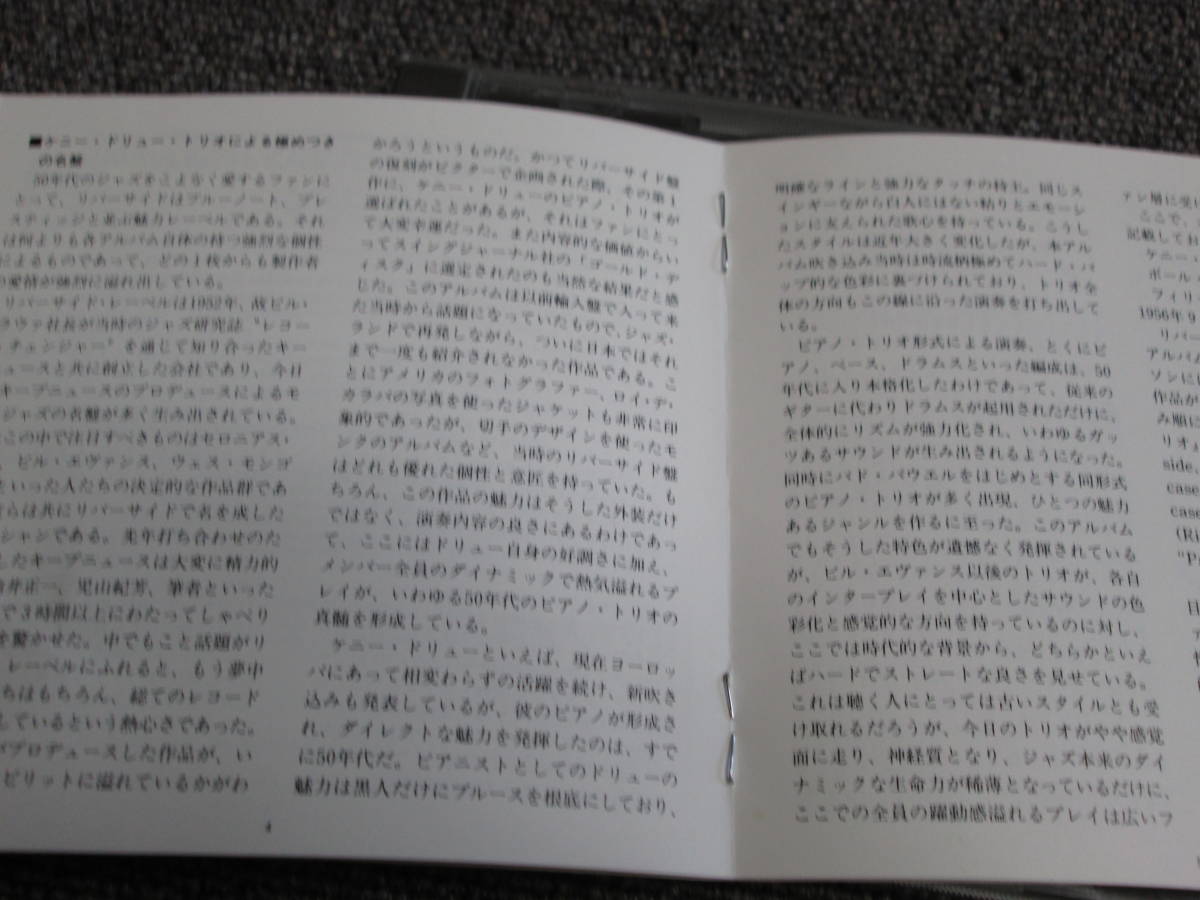 ■ケニー・ドリュー・トリオによる極めつき
の名盤
50年代のジャズをこよなく愛するファンに
とって、リバーサイドはブルーノート、プレ
スティッジと並ぶ魅力レーベルである。それ
は何よりも各アルバム自体の持つ強烈な個性
によるものであって、どの1枚からも製作者
の愛情が強烈に溢れ出している。
リバーサイド・レーベルは1952年、故ビル・
ラウァ社長が当時のジャズ研究誌“レコー
チェンジャー”を通じて知り合ったキー
ュースと共に創立した会社であり、今日
キープニュースのプロデュースによるモ
ジャズの名盤が多く生み出されている。
この中で注目すべきものはセロニアス・
、ビル・エヴァンス、ウェス・モンゴ
といった人たちの決定的な作品群であ
らは共にリバーサイドで名を成した
シャンである。先年打ち合わせのた
したキープニュースは大変に精力的
井正一、児山紀芳、筆者といった
で3時間以上にわたってしゃべり
を驚かせた。中でもこと話題がリ
レーベルにふれると、もう夢中
ちはもちろん、総てのレコード
しているという熱心さであった。
がプロデュースした作品が、い
ピリットに溢れているかがわ
4
かろうというものだ。かつてリバーサイド盤
の復刻がビクターで企画された際、その第1
作に、ケニー・ドリューのピアノ・トリオが
選ばれたことがあるが、それはファンにとっ
て大変幸運だった。また内容的な価値からい
ってスイングジャーナル社の「ゴールド・デ
ィスク」に選定されたのも当然な結果だと感
じた。このアルバムは以前輸入盤で入って来
た当時から話題になっていたもので、ジャズ・
ランドで再発しながら、ついに日本ではそれ
まで一度も紹介されなかった作品である。こ
とにアメリカのフォトグラファー、ロイ・デ・
カラバの写真を使ったジャケットも非常に印
象的であったが、切手のデザインを使ったモ
ンクのアルバムなど、当時のリバーサイド盤
はどれも優れた個性と意匠を持っていた。も
ちろん、この作品の魅力はそうした外装だけ
ではなく、演奏内容の良さにあるわけであっ
て、ここにはドリュー自身の好調さに加え、
メンバー全員のダイナミックで熱気溢れるプ
レイが、いわゆる50年代のピアノ・トリオの
真髄を形成している。
ケニー・ドリューといえば、現在ヨーロッ
パにあって相変わらずの活躍を続け、新吹き
込みも発表しているが、彼のピアノが形成さ
れ、ダイレクトな魅力を発揮したのは、すで
に50年代だ。ピアニストとしてのドリューの
魅力は黒人だけにブルースを根底にしており、
明確なラインと強力なタッチの持主。同じス
インギーながら白人にはない粘りとエモーシ
ョンに支えられた歌心を持っている。こうし
たスタイルは近年大きく変化したが、本アル
バム吹き込み当時は時流柄極めてハード・バ
ップ的な色彩に裏づけられており、トリオ全
体の方向もこの線に沿った演奏を打ち出して
いる。
ピアノ・トリオ形式による演奏、とくにピ
アノ、ベース、ドラムスといった編成は、50
年代に入り本格化したわけであって、従来の
ギターに代わりドラムスが起用されただけに、
全体的にリズムが強力化され、いわゆるガッ
ツあるサウンドが生み出されるようになった。
同時にバド・パウエルをはじめとする同形式
のピアノ・トリオが多く出現、ひとつの魅力
あるジャンルを作るに至った。このアルバム
でもそうした特色が遺憾なく発揮されている
が、ビル・エヴァンス以後のトリオが、各自
のインタープレイを中心としたサウンドの色
彩化と感覚的な方向を持っているのに対し、
ここでは時代的な背景から、どちらかといえ
ばハードでストレートな良さを見せている。
これは聴く人にとっては古いスタイルとも受
け取れるだろうが、今日のトリオがやや感覚
面に走り、神経質となり、ジャズ本来のダイ
ナミックな生命力が稀薄となっているだけに、
ここでの全員の躍動感溢れるプレイは広いフ
ァン層に受け
ここで、
記載してお
ケニー・
ポール・
フィリ
1956年9
リバー
アルバム
ソンに
作品が
み順に
リオ』
side.
case
case
(Ri
"P